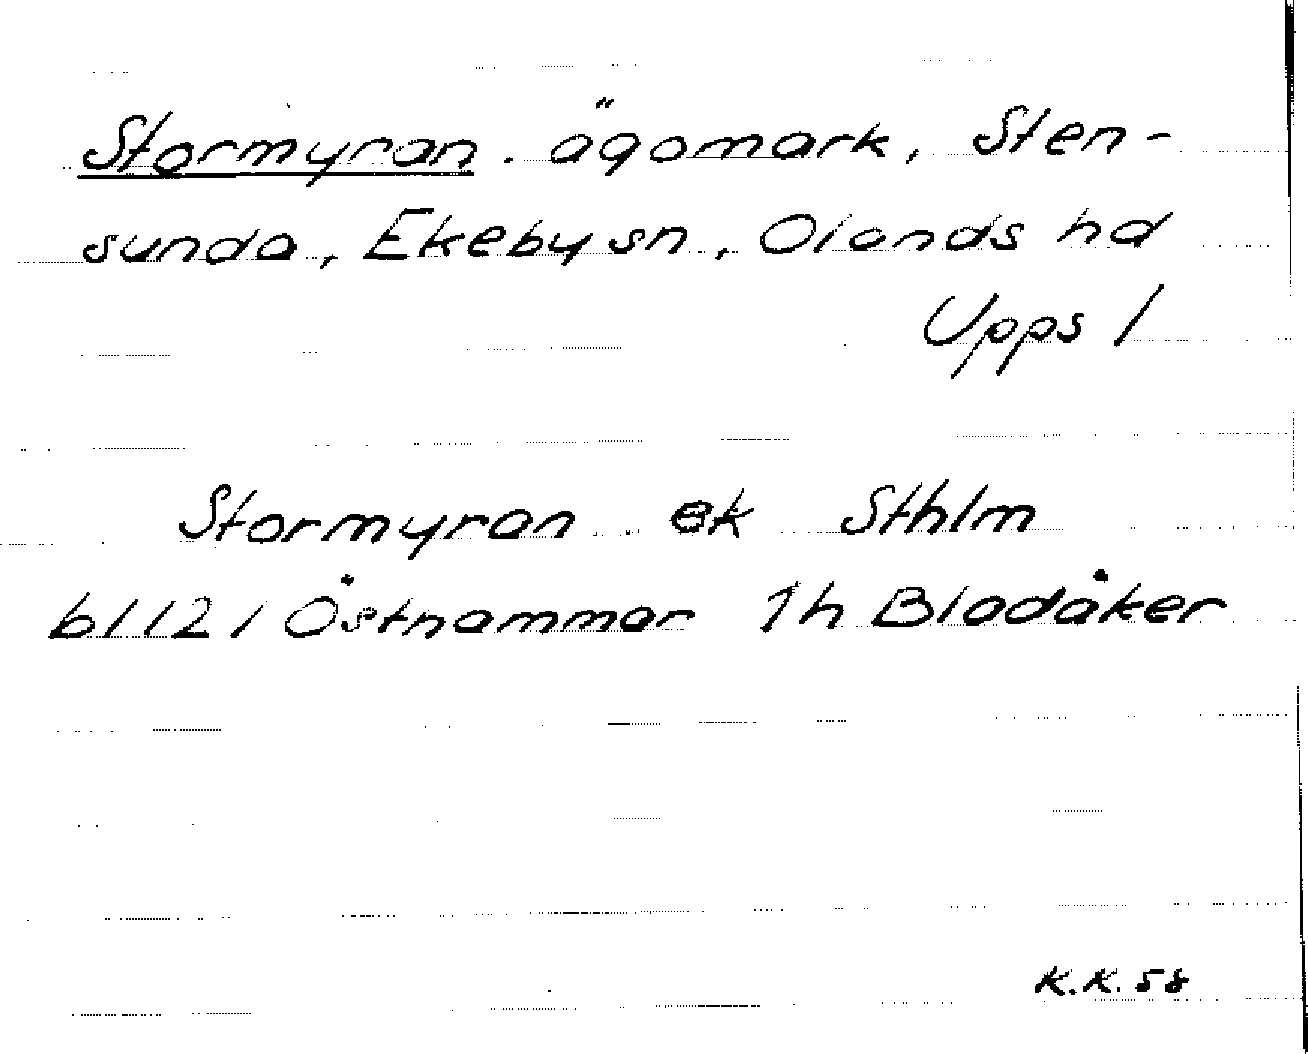 Stormyran. ägomark, Sten-
sunda, Ekeby sn, Olands hd
Upps l
Stormyran ek Sthlm
bl 121 Östhammar 1h Bladåker
K.K. 58